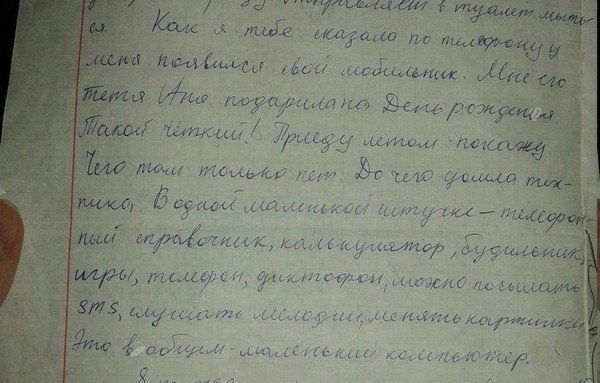 отправляет в туалет мыть
ся. Как я тебе сказала по телефону у
меня появился свой мобильник. Мне его
тётя Аня подарила на День рождения.
Такой чёткий! Приеду летом - покажу.
Чего там только нет. До чего дошла тех-
ника. В одной маленькой штучке - телефон-
ный справочник, калькулятор, будильник,
игры, телефон, диктофон, можно посылать
sms, слушать мелодии, менять картинки
Это в общем - маленький компьютер.